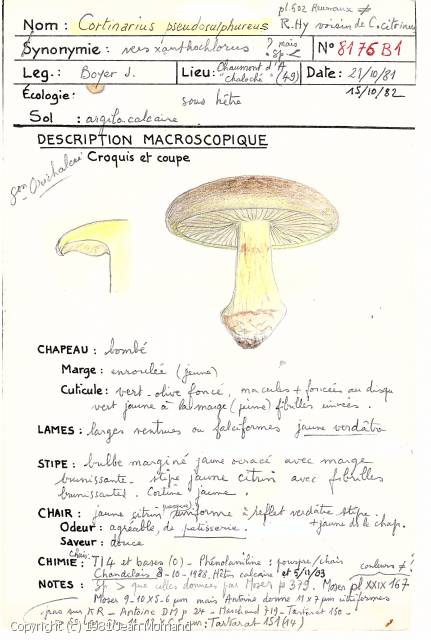 pl 502 Reumaux ≠
Nom : Cortinarius pseudosulphureus R. Hy voisin de C. citrinus
Synonymie : vers xanthochlorus ? mais sp < N° 8176B1
Leg. : Boyer J. Lieu : Chaumont d'A "chaloché" (49) Date : 21/10/81
Écologie : sous hêtre 15/10/82
Sol : argilo calcaire
DESCRIPTION MACROSCOPIQUE
Croquis et coupe
CHAPEAU : bombé
Marge : enroulée (jeune)
Cuticule : vert-olive foncé, macules + foncées au disque
vert jaune à la marge (jeune) fibrilles innées.
LAMES : larges ventrues ou falciformes jaune verdâtre
STIPE : bulbe marginé jaune ocracé avec marge
brunissante - stipe jaune citrin avec fibrilles
brunissantes. Cortine jaune.
CHAIR : jaune citrin uniforme à reflet verdâtre stipe.
Odeur : agréable, de patisserie. + jaune ds le chap.
Saveur : douce
CHIMIE : Chair: Tl4 et bases (0) - Phénolaniline : pourpre/chair couleurs ≠ ?
Chandelais 8-10-1988. Hêtres calcaire et 5/11/03
NOTES : sp > que celles données par Moser p 379 - Moser pl XXIX 167
Moser 9-10 x 5-6 µm mais Antoine donne 11 x 7 µm citriformes
pas sur KR - Antoine DM p 24 - Marchand 719 - Tartarat 150 -
µm : Tartarat 151 (14)
Copyright (c) 1981 Jean Mornand